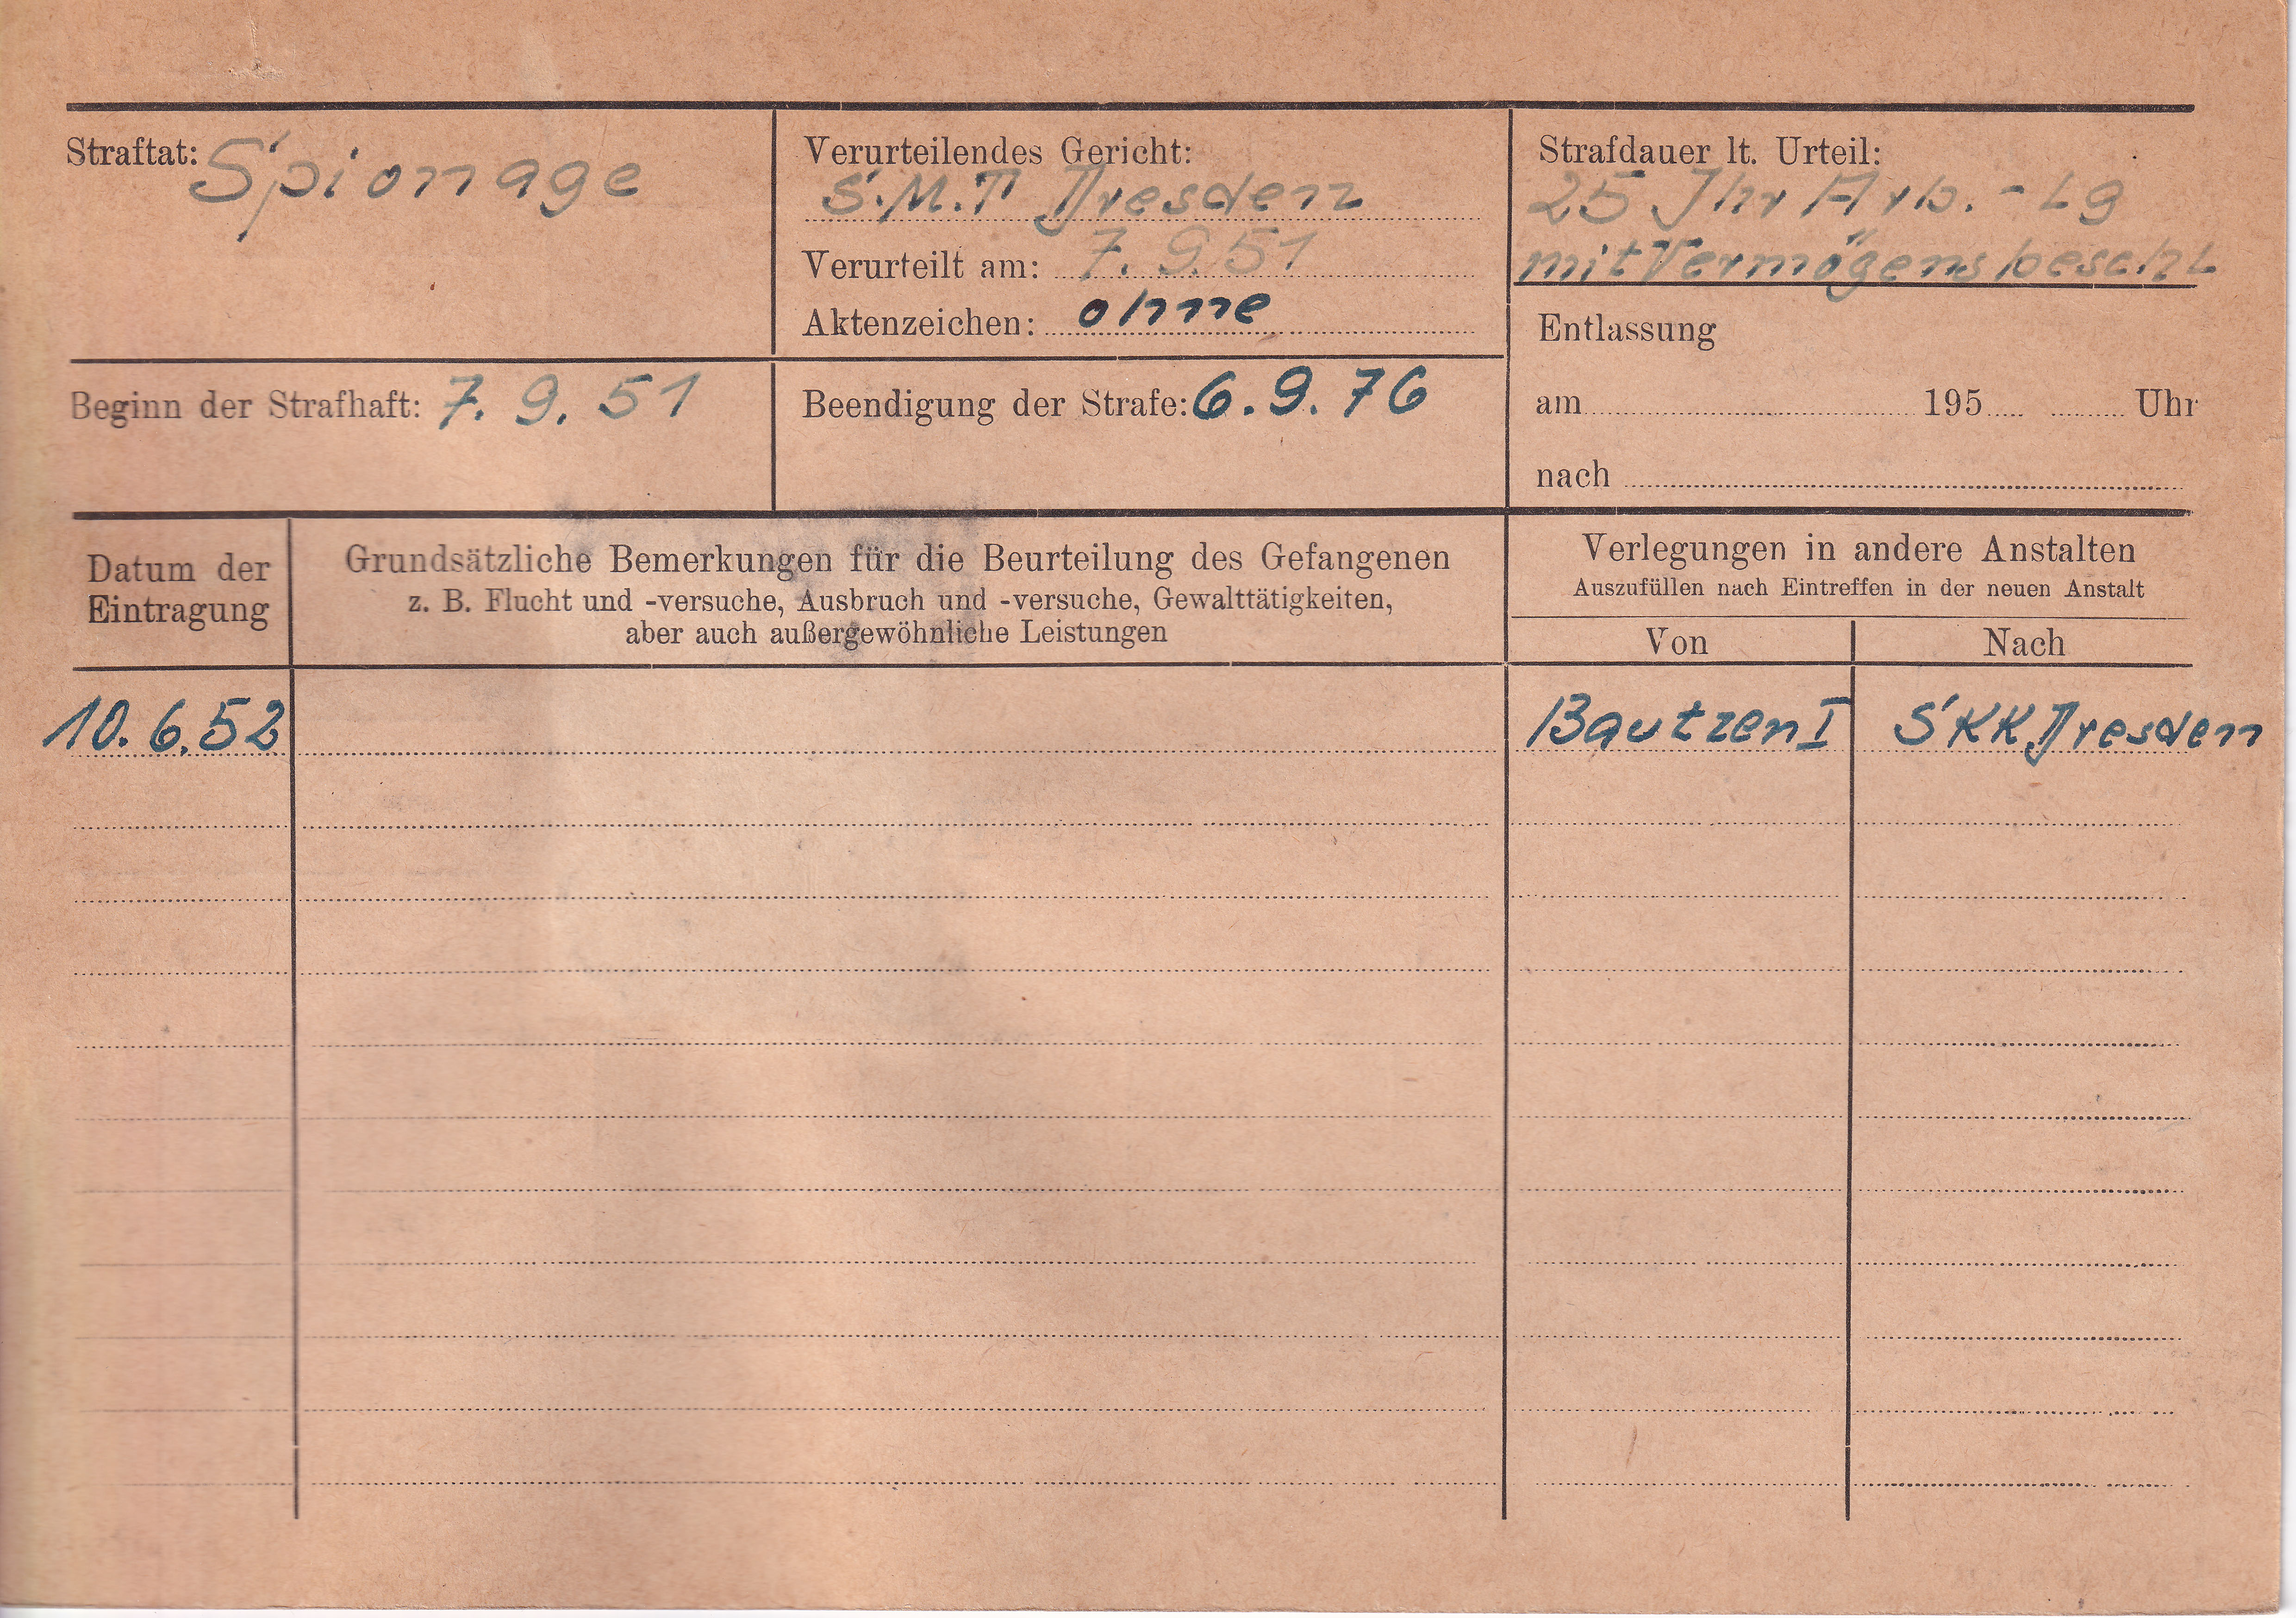 Straftat: Spionage
Verurteilendes Gericht:
S.M.T Dresden
Verurteilt am: 7.9.51
Aktenzeichen: ohne
Strafdauer lt. Urteil:
25 Jhr Arb.-Lg
mit Vermögensbeschl
Entlassung
am 195 Uhr
nach
Beginn der Strafhaft: 7.9.51
Beendigung der Strafe: 6.9.76
Datum der
Eintragung
Grundsätzliche Bemerkungen für die Beurteilung des Gefangenen
z. B. Flucht und -versuche, Ausbruch und -versuche, Gewalttätigkeiten,
aber auch außergewöhnliche Leistungen
Verlegungen in andere Anstalten
Auszufüllen nach Eintreffen in der neuen Anstalt
Von Nach
10.6.52 Bautzen I SKK Dresden